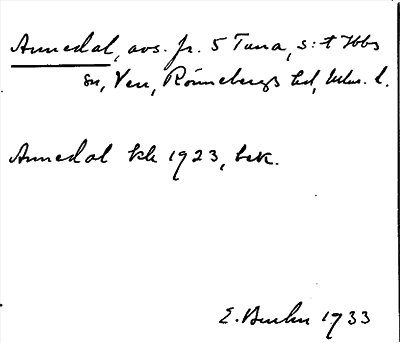 Annedal, avs. fr. 5 Tuna, s:t Ibbs
sn, Ven, Rönnebergs hd, Mlm. l.
Annedal kk 1923, bek.
E. 1933